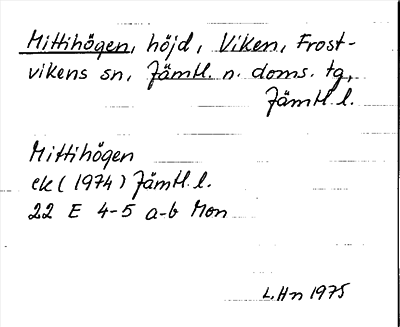 Mittihögen, höjd, Viken, Frost-
vikens sn, Jämtl. n. doms. tg,
Jämtl. l.
Mittihögen
ek (1974) Jämtl. l.
22 E 4-5 a-b Mon
L. Hn 1975